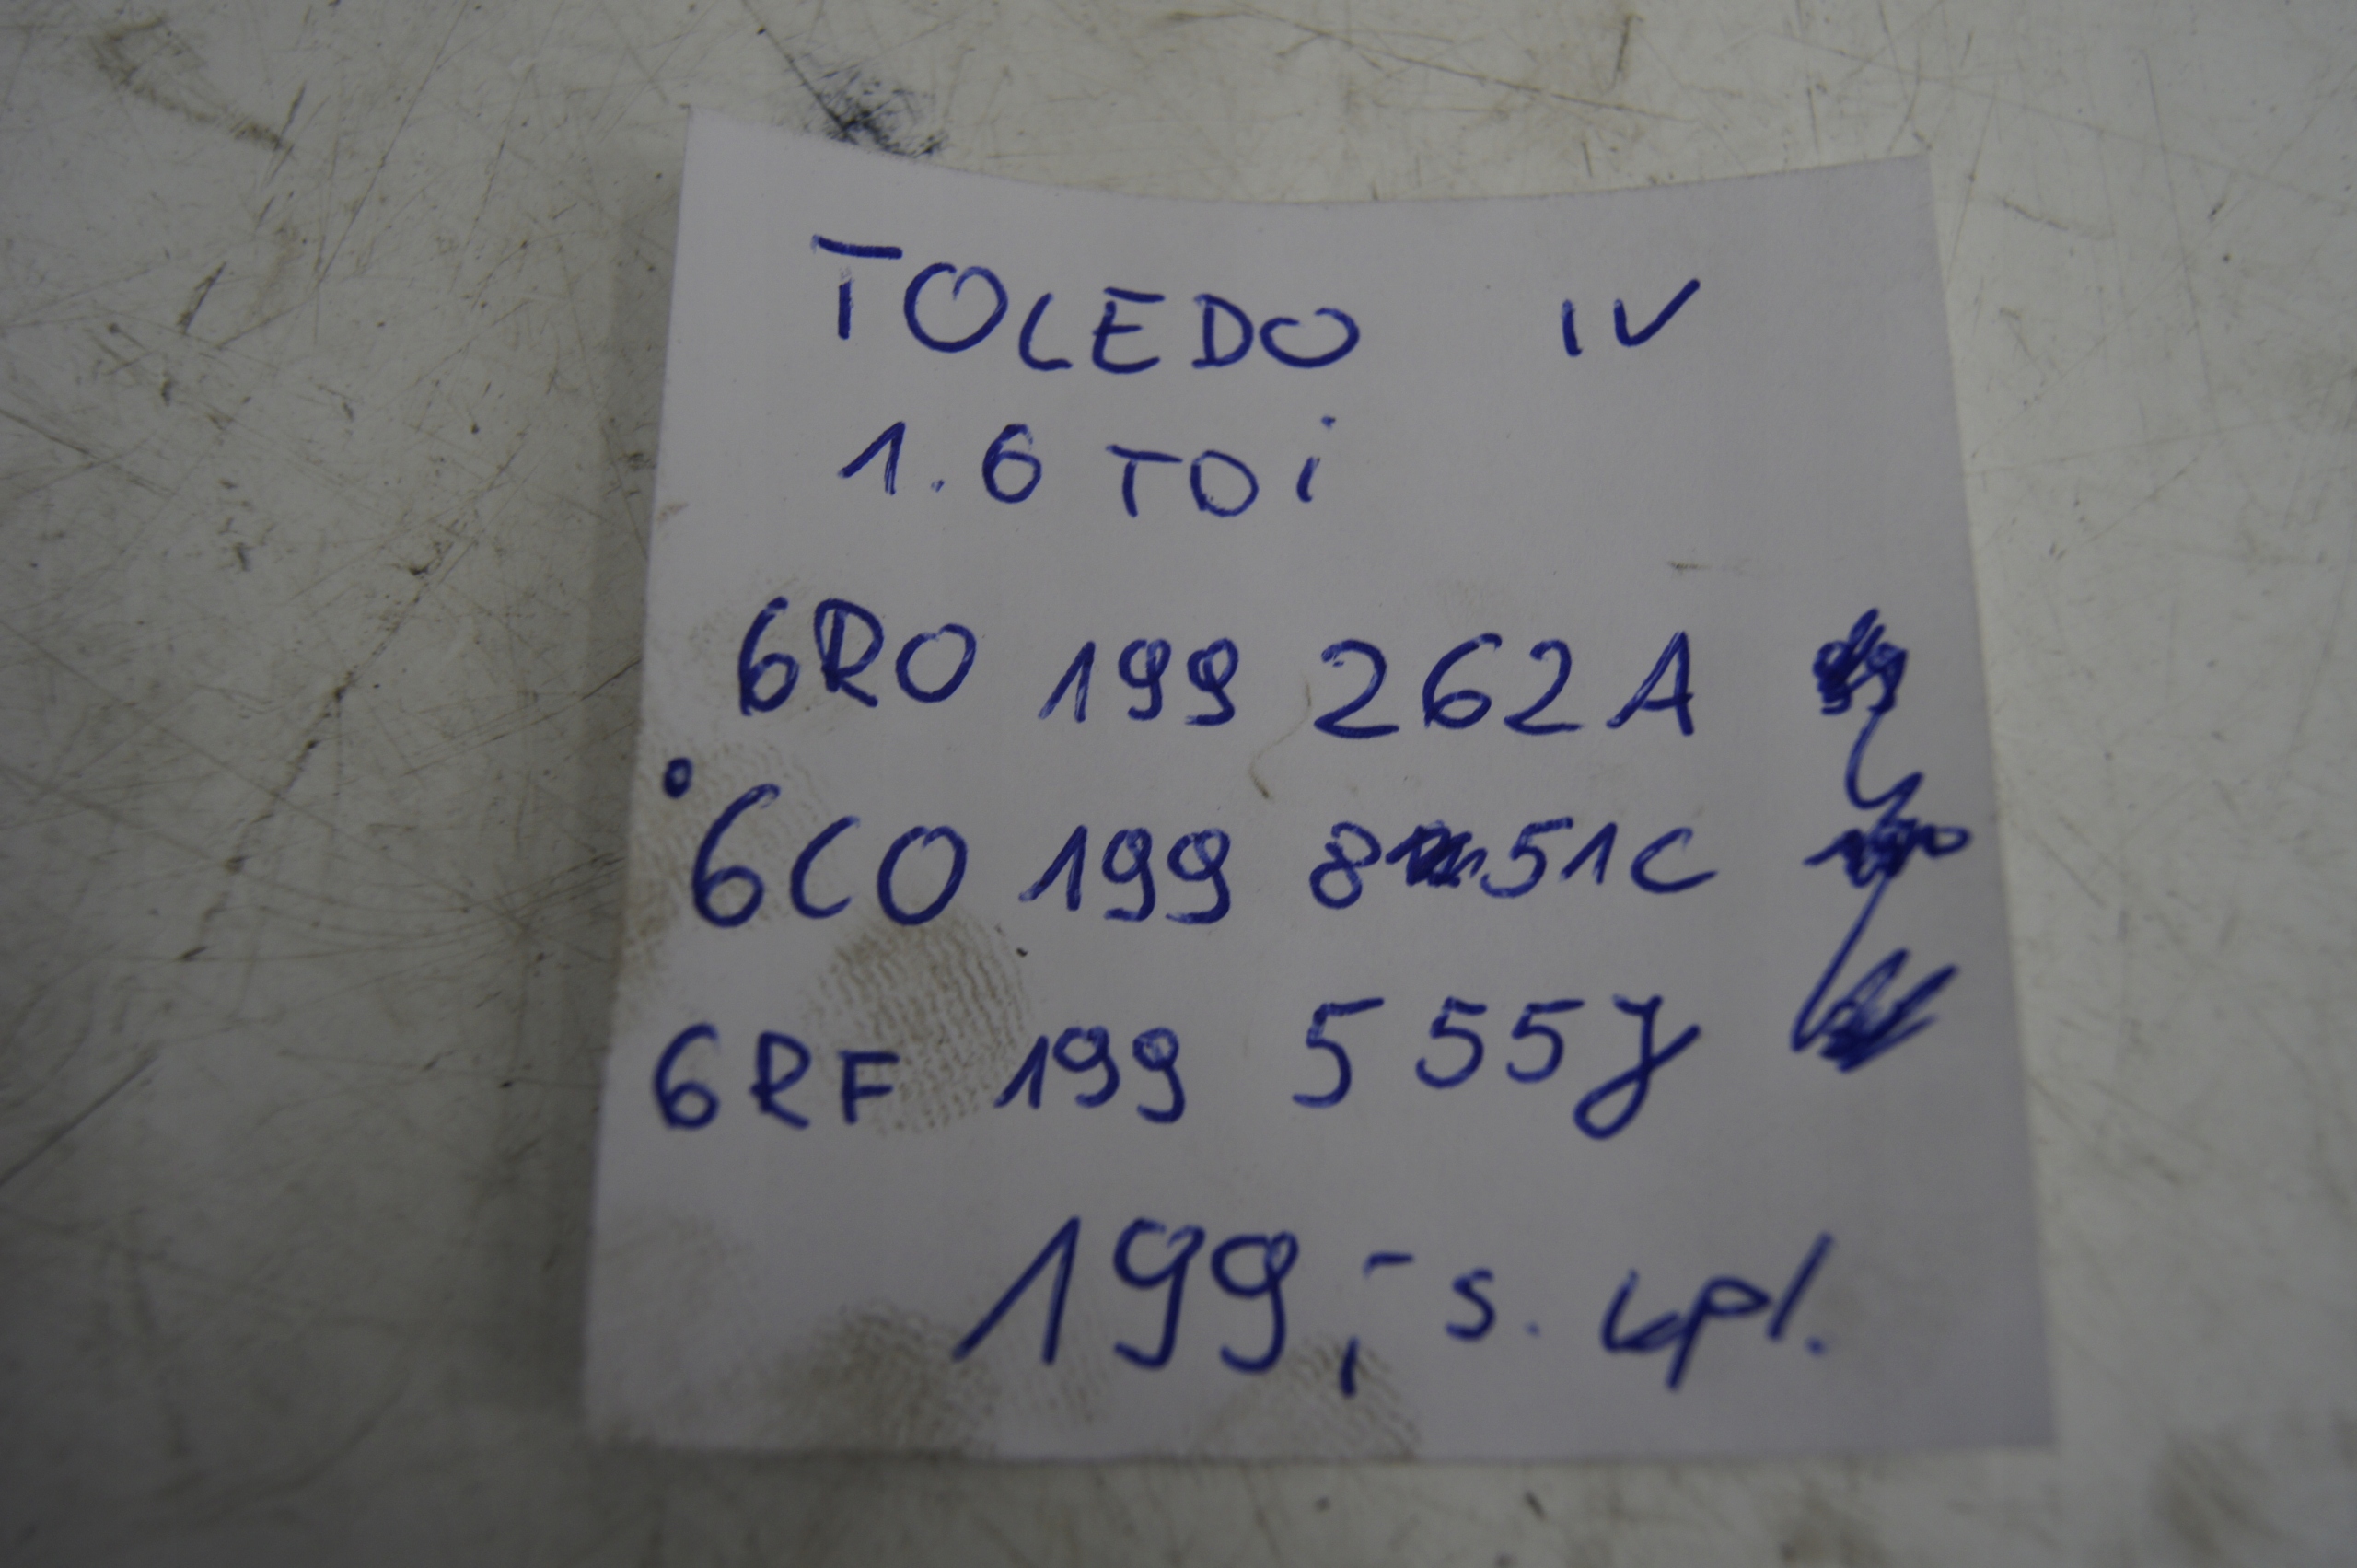 TOLEDO IV
1.6 TDi
6R0 199 262 A
6C0 199 851 C
6RF 199 555 J
199,- s. kpl.